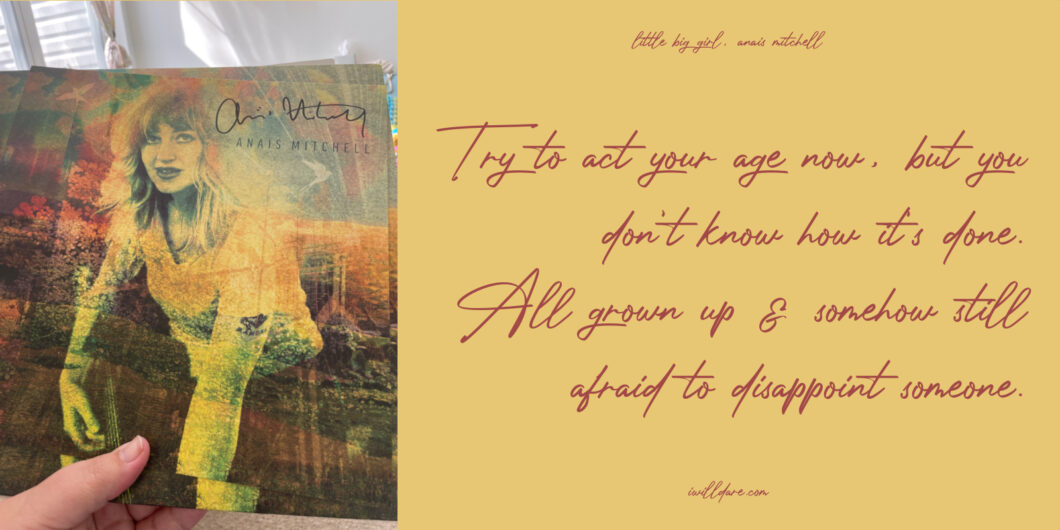 Anais Mitchell
ANAIS MITCHELL
little big girl, anais mitchell
Try to act your age now, but you
don't know how it's done.
All grown up & somehow still
afraid to disappoint someone.
iwilldare.com